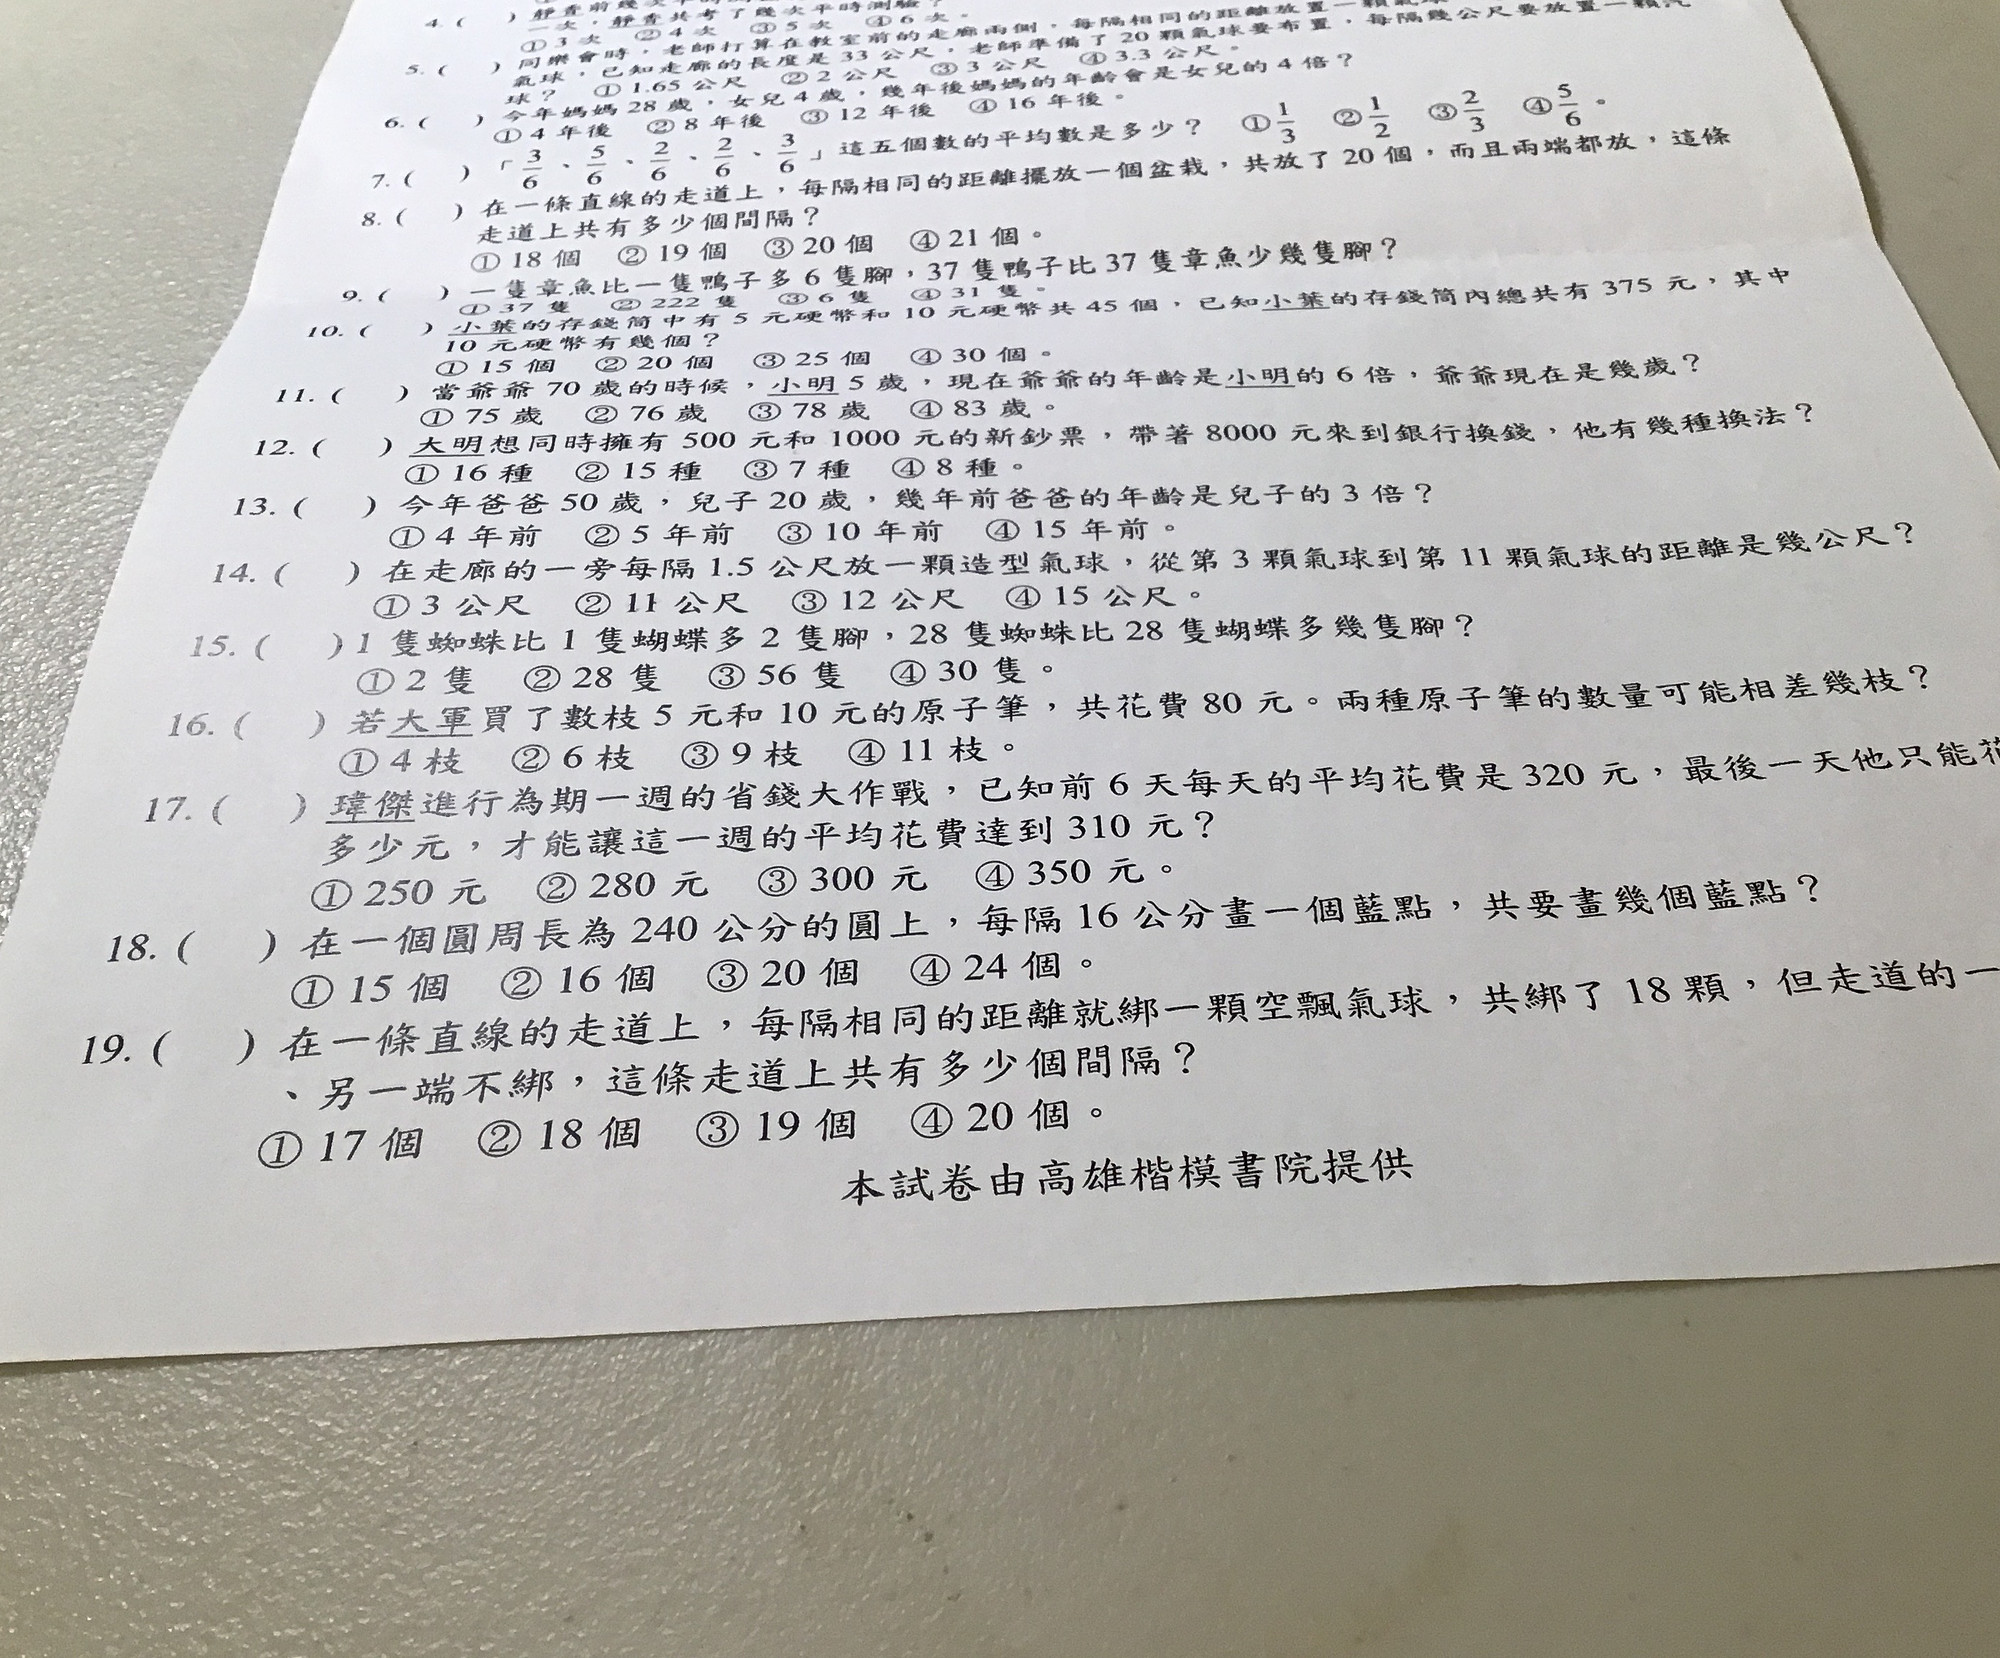 4. ( ) 靜香前幾次平時
一次，靜香共考了幾次平時測驗？
① 3 次 ② 4 次 ③ 5 次 ④ 6 次。
5. ( ) 同樂會時，老師打算在教室前的走廊兩側，每隔相同的距離放置一顆氣球
氣球，已知走廊的長度是 33 公尺，老師準備了 20 顆氣球要布置，每隔幾公尺要放置一顆汽
球？ ① 1.65 公尺 ② 2 公尺 ③ 3 公尺 ④ 3.3 公尺。
6. ( ) 今年媽媽 28 歲，女兒 4 歲，幾年後媽媽的年齡會是女兒的 4 倍？
① 4 年後 ② 8 年後 ③ 12 年後 ④ 16 年後。
7. ( ) 「3/6、5/6、2/6、2/6、3/6」這五個數的平均數是多少？ ① 1/3 ② 1/2 ③ 2/3 ④ 5/6。
8. ( ) 在一條直線的走道上，每隔相同的距離擺放一個盆栽，共放了 20 個，而且兩端都放，這條
走道上共有多少個間隔？
① 18 個 ② 19 個 ③ 20 個 ④ 21 個。
9. ( ) 一隻章魚比一隻鴨子多 6 隻腳，37 隻鴨子比 37 隻章魚少幾隻腳？
① 37 隻 ② 222 隻 ③ 6 隻 ④ 31 隻。
10. ( ) 小葉的存錢筒中有 5 元硬幣和 10 元硬幣共 45 個，已知小葉的存錢筒內總共有 375 元，其中
10 元硬幣有幾個？
① 15 個 ② 20 個 ③ 25 個 ④ 30 個。
11. ( ) 當爺爺 70 歲的時候，小明 5 歲，現在爺爺的年齡是小明的 6 倍，爺爺現在是幾歲？
① 75 歲 ② 76 歲 ③ 78 歲 ④ 83 歲。
12. ( ) 大明想同時擁有 500 元和 1000 元的新鈔票，帶著 8000 元來到銀行換錢，他有幾種換法？
① 16 種 ② 15 種 ③ 7 種 ④ 8 種。
13. ( ) 今年爸爸 50 歲，兒子 20 歲，幾年前爸爸的年齡是兒子的 3 倍？
① 4 年前 ② 5 年前 ③ 10 年前 ④ 15 年前。
14. ( ) 在走廊的一旁每隔 1.5 公尺放一顆造型氣球，從第 3 顆氣球到第 11 顆氣球的距離是幾公尺？
① 3 公尺 ② 11 公尺 ③ 12 公尺 ④ 15 公尺。
15. ( ) 1 隻蜘蛛比 1 隻蝴蝶多 2 隻腳，28 隻蜘蛛比 28 隻蝴蝶多幾隻腳？
① 2 隻 ② 28 隻 ③ 56 隻 ④ 30 隻。
16. ( ) 若大軍買了數枝 5 元和 10 元的原子筆，共花費 80 元。兩種原子筆的數量可能相差幾枝？
① 4 枝 ② 6 枝 ③ 9 枝 ④ 11 枝。
17. ( ) 瑋傑進行為期一週的省錢大作戰，已知前 6 天每天的平均花費是 320 元，最後一天他只能花
多少元，才能讓這一週的平均花費達到 310 元？
① 250 元 ② 280 元 ③ 300 元 ④ 350 元。
18. ( ) 在一個圓周長為 240 公分的圓上，每隔 16 公分畫一個藍點，共要畫幾個藍點？
① 15 個 ② 16 個 ③ 20 個 ④ 24 個。
19. ( ) 在一條直線的走道上，每隔相同的距離就綁一顆空飄氣球，共綁了 18 顆，但走道的一
、另一端不綁，這條走道上共有多少個間隔？
① 17 個 ② 18 個 ③ 19 個 ④ 20 個。
本試卷由高雄楷模書院提供